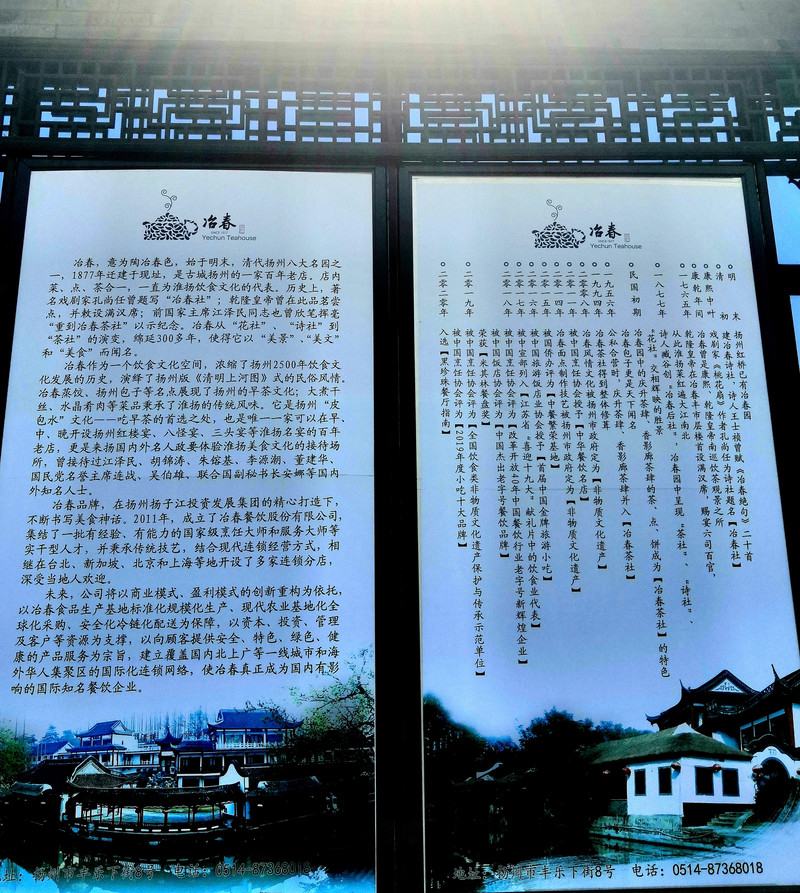 冶春
SINCE 1877
Yechun Teahouse
冶春，意为陶冶春色，始于明末，清代扬州八大名园之
一，1877年迁建于现址，是古城扬州的一家百年老店。店内
菜、点、茶合一，一直为淮扬饮食文化的代表。历史上，著
名戏剧家孔尚任曾题写“冶春社”；乾隆皇帝曾在此品茗尝
点，并敕设满汉席；前国家主席江泽民同志也曾欣笔挥毫
“重到冶春茶社”以示纪念。冶春从“花社”、“诗社”到
“茶社”的演变，绵延300多年，使得它以“美景”、“美文”
和“美食”而闻名。
冶春作为一个饮食文化空间，浓缩了扬州2500年饮食文
化发展的历史，演绎了扬州版《清明上河图》式的民俗风情。
冶春蒸饺、扬州包子等名点展现了扬州的早茶文化；大煮干
丝、水晶肴肉等菜品秉承了淮扬的传统风味。它是扬州“皮
包水”文化——吃早茶的首选之处，也是唯一一家可以在早、
中、晚开设扬州红楼宴、八怪宴、三头宴等淮扬名宴的百年
老店，更是来扬国内外名人政要体验淮扬美食文化的接待场
所，曾接待过江泽民、胡锦涛、朱镕基、李源潮、董建华、
国民党名誉主席连战、吴伯雄、联合国副秘书长安娜等国内
外知名人士。
冶春品牌，在扬州扬子江投资发展集团的精心打造下，
不断书写美食神话。2011年，成立了冶春餐饮股份有限公司，
集结了一批有经验、有能力的国家级烹饪大师和服务大师等
实干型人才，并秉承传统技艺，结合现代连锁经营方式，相
继在台北、新加坡、北京和上海等地开设了多家连锁分店，
深受当地人欢迎。
未来，公司将以商业模式、盈利模式的创新重构为依托，
以冶春食品生产基地标准化规模化生产、现代农业基地化全
球化采购、安全化冷链化配送为保障，以资本、投资、管理
及客户等资源为支撑，以向顾客提供安全、特色、绿色、健
康的产品服务为宗旨，建立覆盖国内北上广等一线城市和海
外华人集聚区的国际化连锁网络，使冶春真正成为国内有影
响的国际知名餐饮企业。
址：扬州市丰乐下街8号 电话：0514-87368018
冶春
SINCE 1877
Yechun Teahouse
明 末 扬州红桥已有冶春园
清 初 建冶春诗社，诗人王士祯曾赋《冶春绝句》二十首
康熙中叶 戏剧家《桃花扇》作者孔尚任为诗社题名【冶春社】
康乾年间 冶春曾是康熙、乾隆皇帝南巡饮茶观景之所
一七六五年 乾隆皇帝在冶春丰市层楼首设满汉席，赐宴六司百官，
从此淮扬菜红遍大江南北
一八七七年 诗人臧谷创“冶春后社”。冶春园中呈现“茶社”、“诗社”、
“花社”交相辉映的胜景
民国初期 冶春园中的庆升茶肆、香影廊茶肆的茶、点、饼成为【冶春茶社】的特色
冶春包子更是天下闻名
一九五六年 公私合营时，庆升茶肆、香影廊茶肆并入【冶春茶社】
一九九四年 冶春茶社得到整体修葺
冶春风情文化被扬州市政府定为【非物质文化遗产】
被中国烹饪协会授予【中华餐饮名店】
二〇一四年 冶春面点制作技艺被扬州市政府定为【非物质文化遗产】
被国侨办评为【中餐繁荣基地】
二〇一六年 被中国旅游饭店业协会授予【首届中国金牌旅游小吃】
被中宣部列入【江苏省“喜迎十九大”献礼片中的饮食业代表】
二〇一八年 被中国烹饪协会评为【改革开放40年中国餐饮行业老字号新辉煌企业】
被中国饭店协会评为【中国杰出老字号餐饮品牌】
荣获【米其林餐盘奖】
二〇一九年 被中国烹饪协会评为【全国饮食类非物质文化遗产保护与传承示范单位】
被中国烹饪协会评为【2019年度小吃十大品牌】
二〇二〇年 入选【黑珍珠餐厅指南】
地址：扬州市丰乐下街8号 电话：0514-87368018